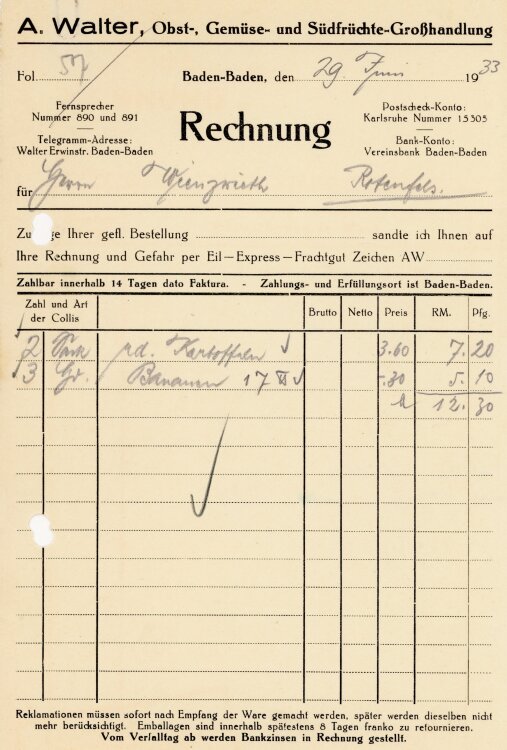 A. Walter, Obst-, Gemüse- und Südfrüchte-Großhandlung
Fol. 57 Baden-Baden, den 29. Juni 1933
Fernsprecher
Nummer 890 und 891
Telegramm-Adresse:
Walter Erwinstr. Baden-Baden
Rechnung
Postscheck-Konto:
Karlsruhe Nummer 15305
Bank-Konto:
Vereinsbank Baden-Baden
für Herrn Rotenfels.
Zu ge Ihrer gefl. Bestellung sandte ich Ihnen auf
Ihre Rechnung und Gefahr per Eil—Express—Frachtgut Zeichen AW
Zahlbar innerhalb 14 Tagen dato Faktura. - Zahlungs- und Erfüllungsort ist Baden-Baden.
Zahl und Art der Collis Brutto Netto Preis RM. Pfg.
2 Sack rd. Kartoffeln 3.60 7.20
3 Bananen 17 -.30 5.10
12.30
Reklamationen müssen sofort nach Empfang der Ware gemacht werden, später werden dieselben nicht
mehr berücksichtigt. Emballagen sind innerhalb spätestens 8 Tagen franko zu retournieren.
Vom Verfalltag ab werden Bankzinsen in Rechnung gestellt.